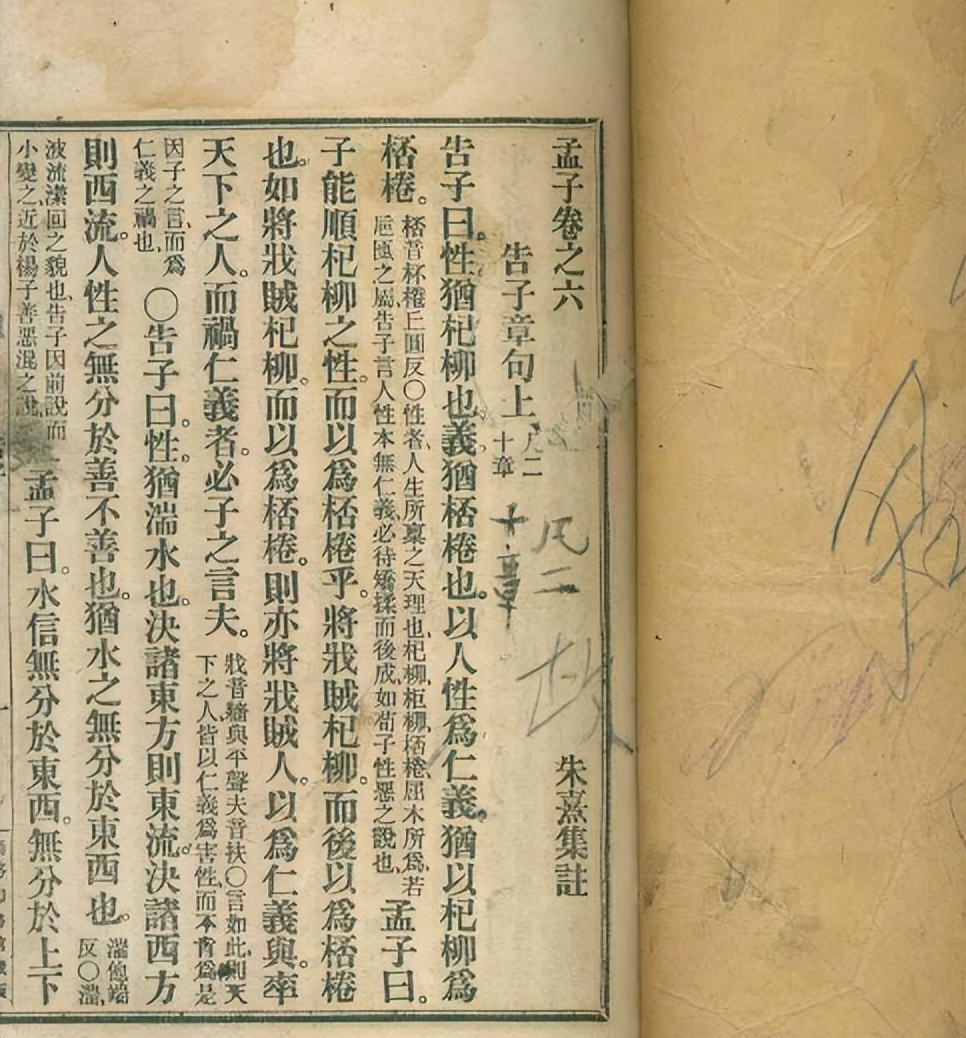 孟子卷之六
朱熹集註
告子章句上
凡二十章
凡二
十章
告子曰。性猶杞柳也。義猶桮棬也。以人性爲仁義。猶以杞柳爲
桮棬。
桮音杯棬丘圓反〇性者、人生所稟之天理也、杞柳、柜柳、桮棬、屈木所爲、若
巵匜之屬、告子言人性本無仁義、必待矯揉而後成、如荀子性惡之說也、
孟子曰。
子能順杞柳之性。而以爲桮棬乎。將戕賊杞柳。而後以爲桮棬
也。如將戕賊杞柳。而以爲桮棬。則亦將戕賊人。以爲仁義與。率
天下之人。而禍仁義者。必子之言夫。
戕音牆與平聲夫音扶〇言如此、則天
下之人、皆以仁義爲害性、而不肯爲、是
因子之言、而爲
仁義之禍也、
〇告子曰。性。猶湍水也。決諸東方則東流。決諸西方
則西流。人性之無分於善不善也。猶水之無分於東西也。
湍他端
反〇湍、
波流瀠回之貌也、告子因前說而
小變之、近於揚子善惡混之說、
孟子曰。水信無分於東西。無分於上下